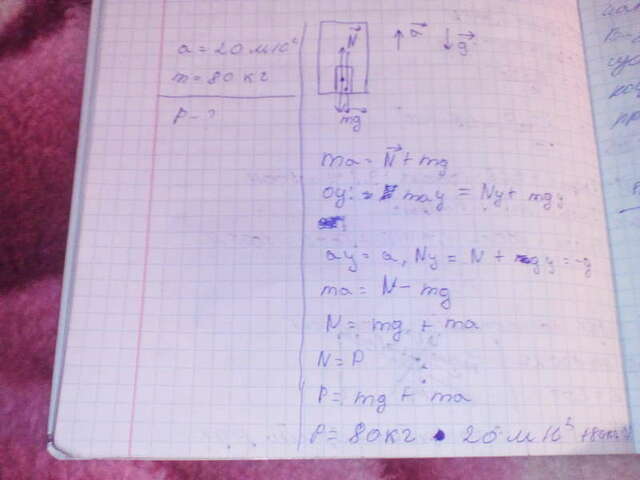 a = 20 м/с²
m = 80 кг
P - ?
N⃗
a⃗
g⃗
mg⃗
ma = N⃗ + mg
oy: may = Ny + mgy
ay = a, Ny = N + gy = -g
ma = N - mg
N = mg + ma
N = P
P = mg + ma
P = 80кг · 20 м/с² +80кг